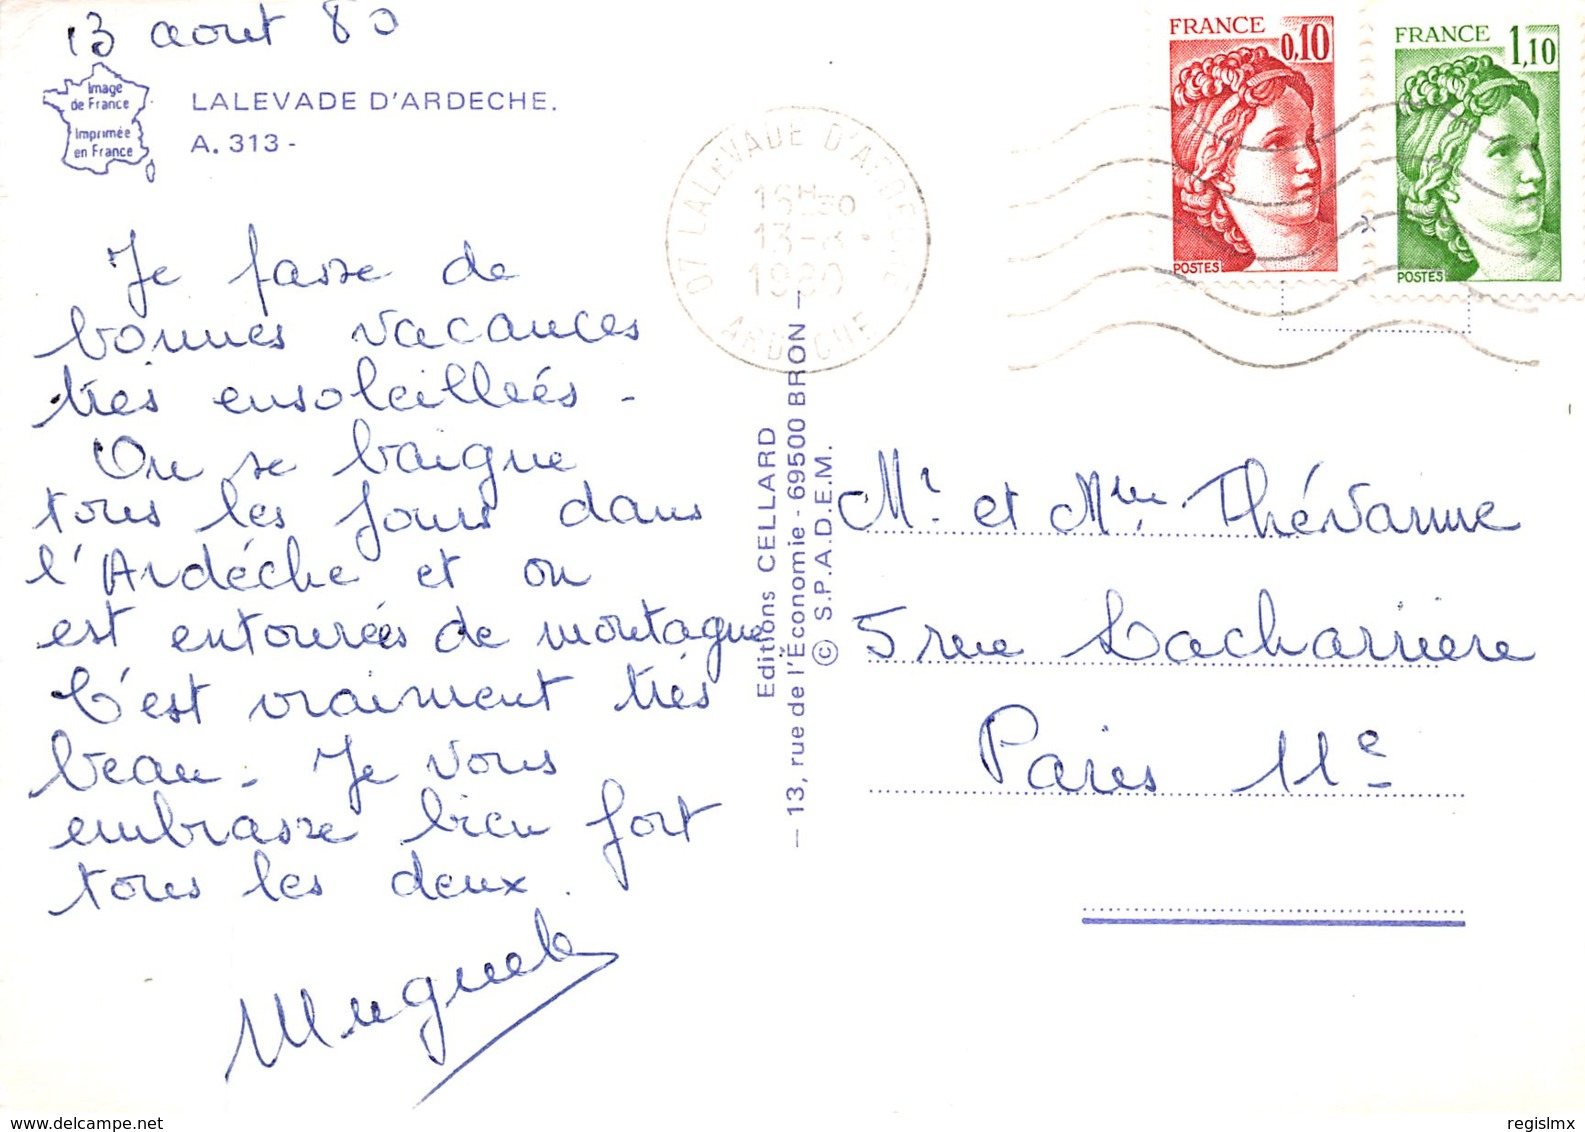 13 aout 80
Image
de France
Imprimée
en France
LALEVADE D'ARDECHE.
A. 313 -
Je passe de
bonnes vacances
très ensoleillées -
On se baigne
tous les jours dans
l'Ardéche et on
est entourées de montagne
C'est vraiment très
beau. Je vous
embrasse bien fort
tous les deux.
07 LALEVADE D'ARDECHE
13-8-
1980
ARDECHE
Editions CELLARD
— 13, rue de l'Économie - 69500 BRON —
© S.P.A.D.E.M.
FRANCE
0,10
POSTES
FRANCE
1,10
POSTES
Mr et Mme Thévanne
5 rue Lacharriere
Paris 11e
www.delcampe.net
regislmx